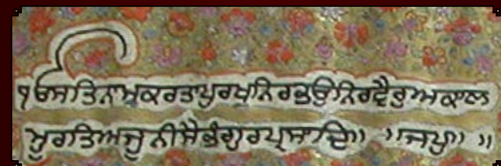 ੧ਓਸਤਿਨਾਮੁਕਰਤਾਪੁਰਖੁਨਿਰਭਉਨਿਰਵੈਰੁਅਕਾਲ
ਮੂਰਤਿਅਜੂਨੀਸੈਭੰਗੁਰਪ੍ਰਸਾਦਿ॥ ॥ਜਪੁ॥ ॥